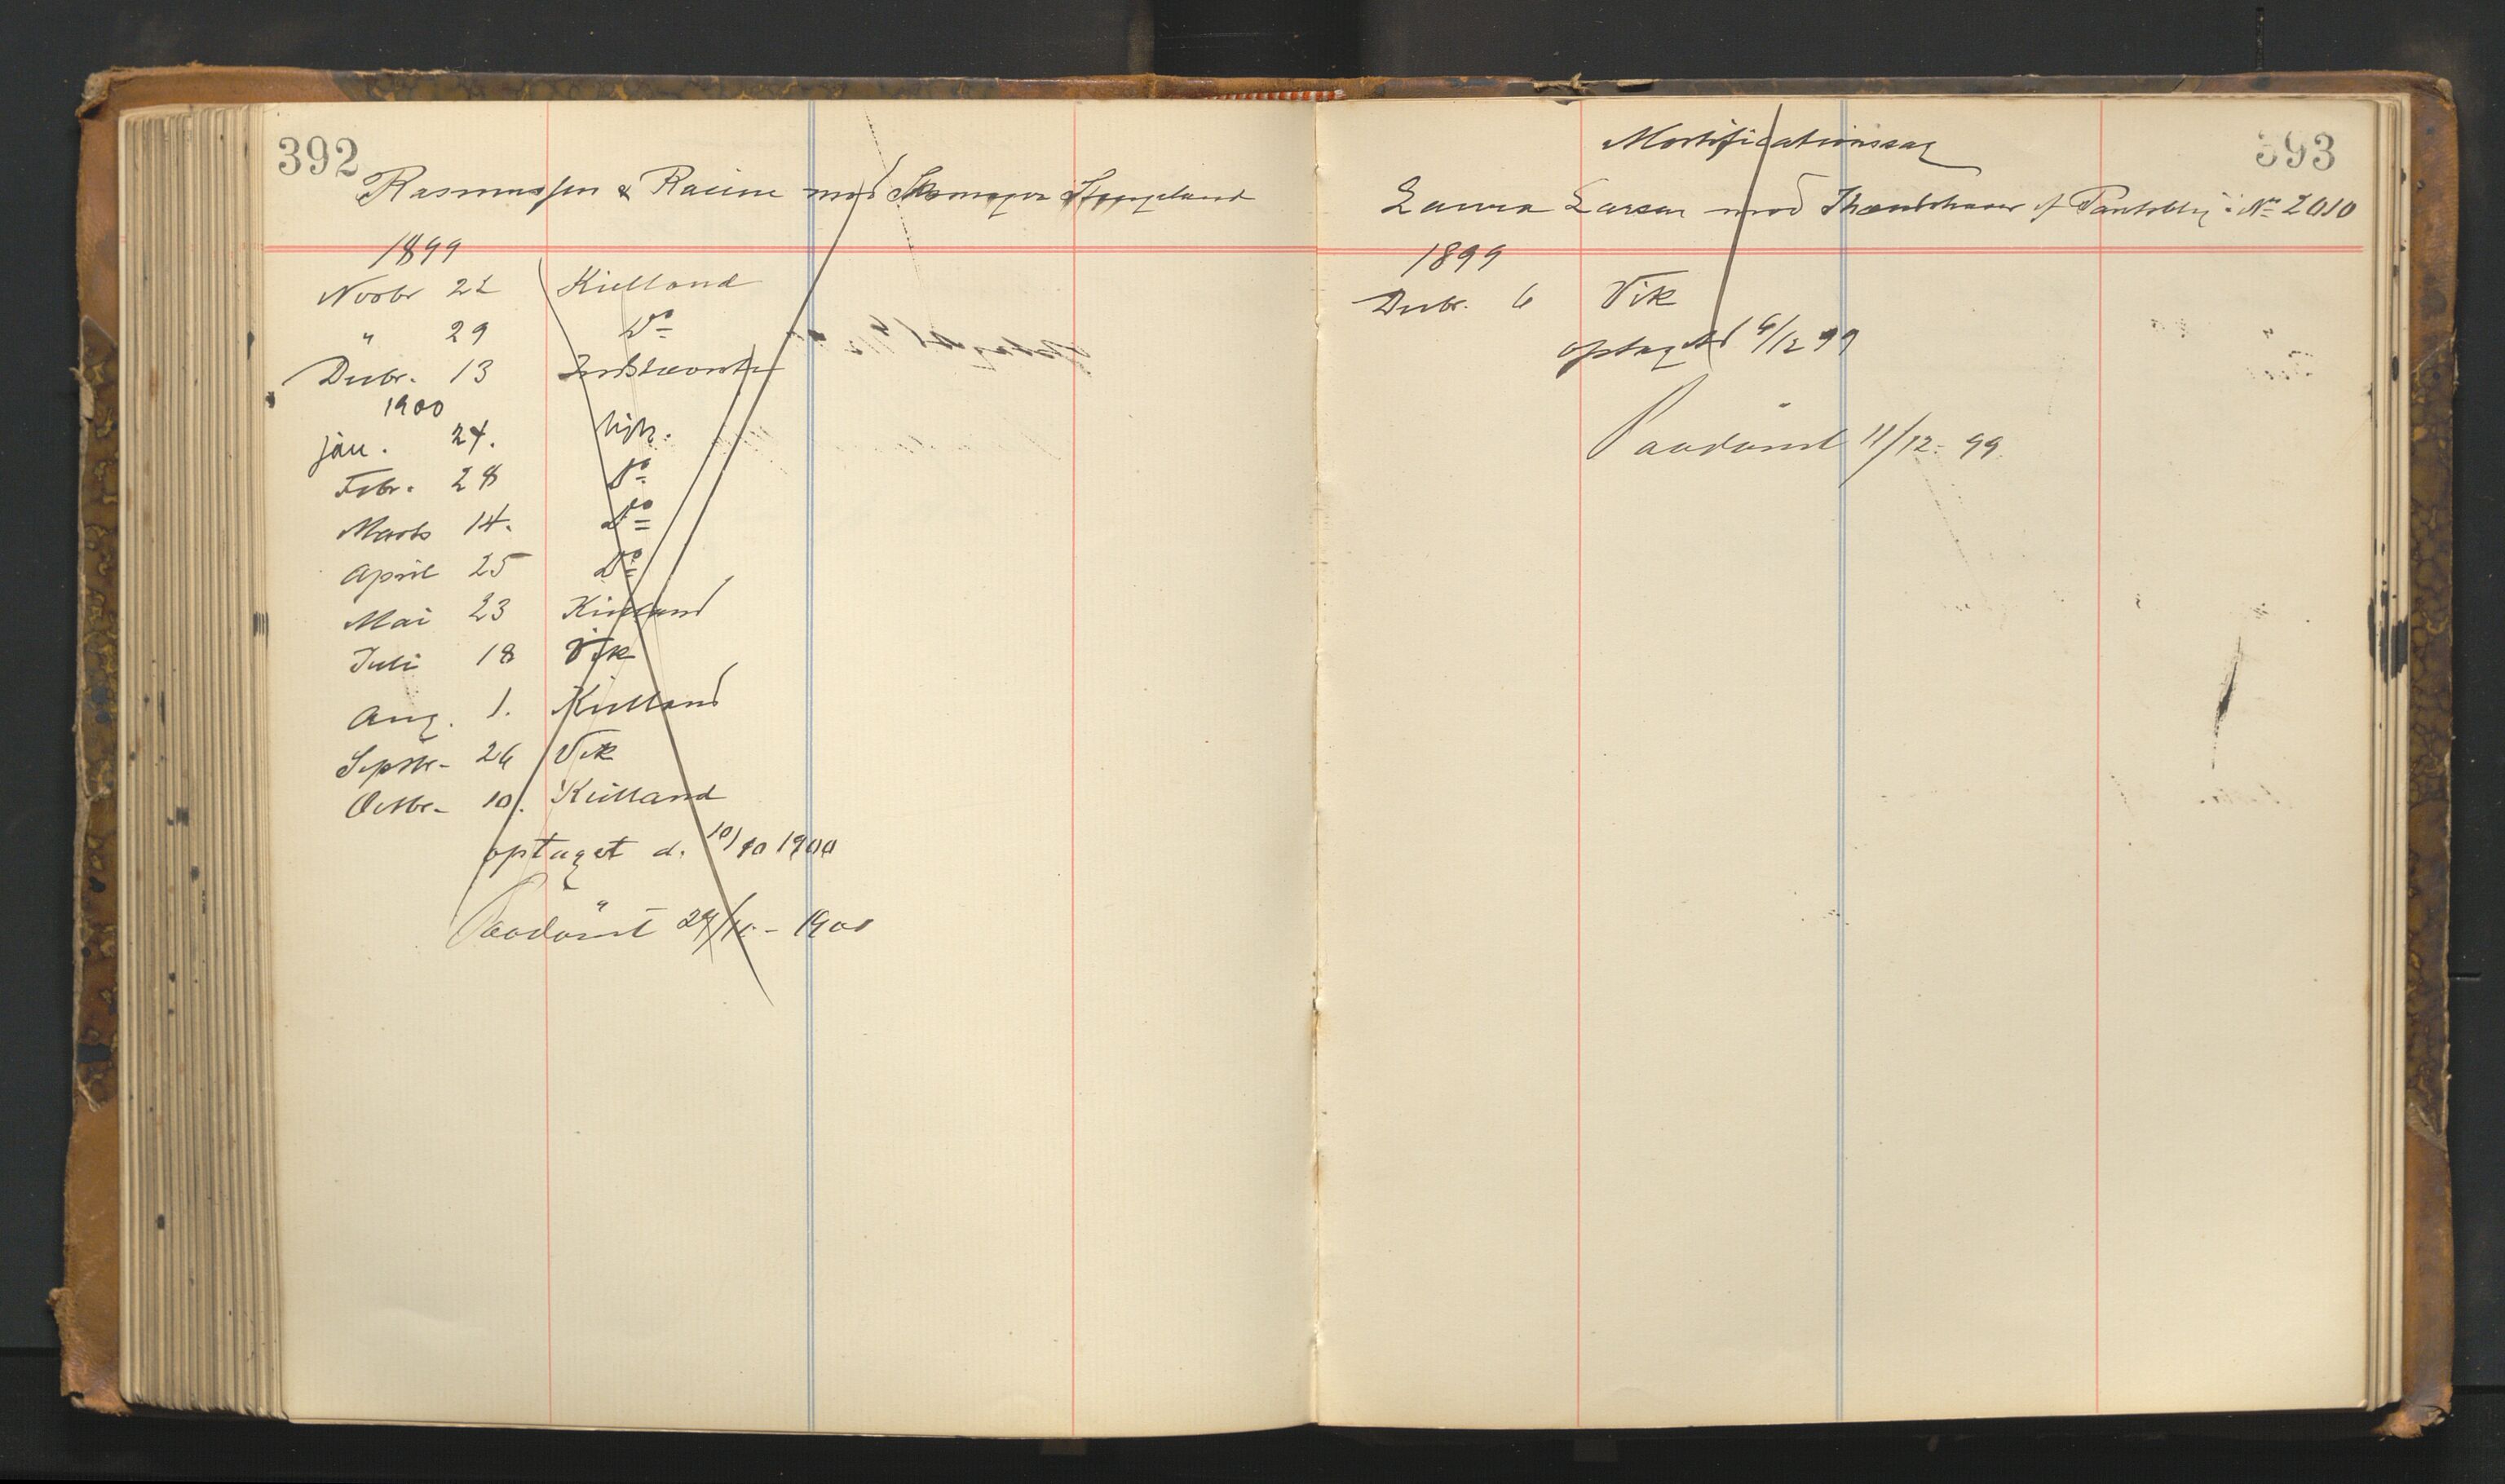 392
Rasmussen & Racine mod Skomager Haugeland
1899
Novbr 22 Kielland
" 29 Do
Decbr. 13 Indstævnte
1900
jan. 24. Vik.
Febr. 28 Do
Marts 14. Do
April 25 Do
Mai 23 Kielland
Juli 18 Vik
Aug. 1. Kielland
Septbr- 26 Vik
Octbr- 10. Kielland
optaget d. 10/10 1900
Paadömt 29/10- 1900
393
Mortificationssag
Laura Larsen mod Ihændehaver af No 2010
1899
Decbr. 6 Vik
optaget 6/12 99
Paadömt 11/12. 99